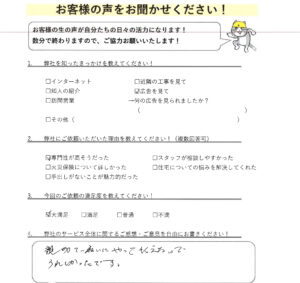 お客様の声をお聞かせください！
お客様の生の声が自分たちの日々の活力になります！
数分で終わりますので、ご協力お願いいたします！
1. 弊社を知ったきっかけを教えてください！
□インターネット □近隣の工事を見て
□知人の紹介 ☑広告を見て
□訪問営業 →何の広告を見られましたか？
( )
□その他（ ）
2. 弊社にご依頼いただいた理由を教えてください！（複数回答可）
☑専門性が高そうだった □スタッフが相談しやすかった
□火災保険について詳しかった □住宅についての悩みを解決してくれた
□手出しがないことが魅力的だった
3. 今回のご依頼の満足度を教えてください！
☑大満足 □満足 □普通 □不満
4. 弊社のサービス全体に関するご感想・ご意見を自由にお書きください！
親切で ていねいに やってもらえたので
うれしかったです。